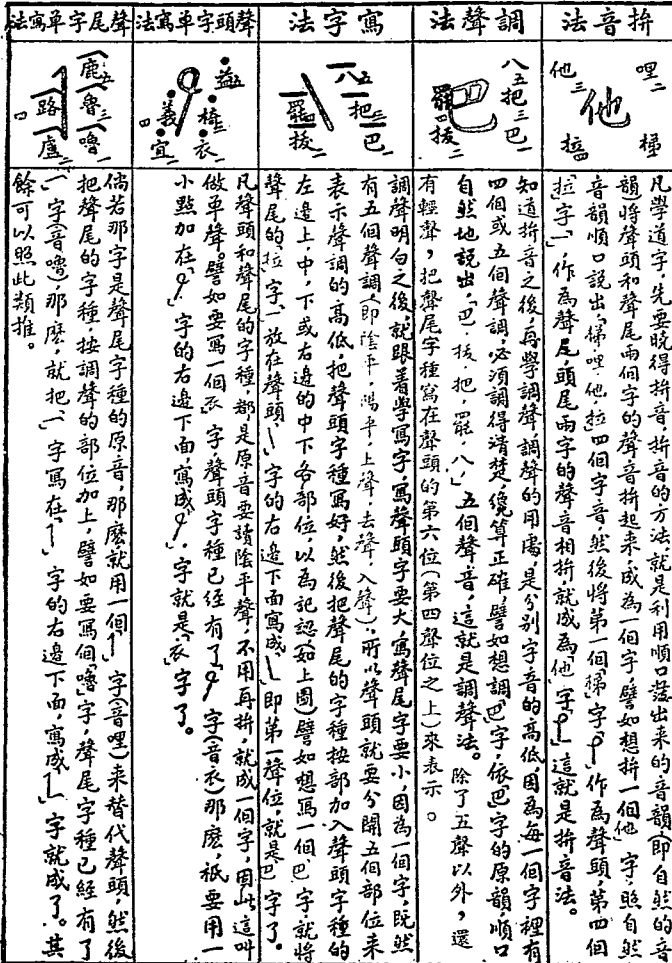 拚音法
哩二
梯一
他三
拉四
他
凡學道字,先要曉得拚音,拚音的方法就是利用順口發出來的音韻(即自然的音
韻)將聲頭和聲尾兩個字的聲音拚起來,成為一個字,譬如想拚一個「他」字,照自然
音韻順口說出,「梯、哩、他、拉」四個字音,然後將第一個「梯」字「」作為聲頭,第四個
「拉」字「」作為聲尾,頭尾兩字的聲音相拚就成為「他」字「」這就是拚音法。
調聲法
八五把三巴一
罷四拔二
巴
知道拚音之後,再學調聲,調聲的用處,是分別字音的高低,因為每一個字裡有
四個或五個聲調,必須調得清楚,纔算正確,譬如想調「巴」字,依「巴」字的原韻,順口
自然地說出,「巴、拔、把、罷、八」五個聲音,這就是調聲法。 除了五聲以外,還
有輕聲,把聲尾字種寫在聲頭的第六位(第四聲位之上)來表示。
寫字法
八五
把三
巴一
罷四
拔二
調聲明白之後,就跟着學寫字,寫聲頭字要大,寫聲尾字要小,因為一個字,既然
有五個聲調(即陰平,陽平,上聲,去聲,入聲),所以聲頭就要分開五個部位來
表示聲調的高低,把聲頭字種寫好,然後把聲尾的字種按部加入聲頭字種的
左邊上,中,下或右邊的中下各部位,以為記認(如上圖)譬如想寫一個「巴」字,就將
聲尾的「拉」字、放在聲頭「」字的右邊下面寫成「」即第一聲位,就是「巴」字了。
聲頭字單寫法
益五
椅三
衣一
義四
宜二
凡聲頭和聲尾的字種,都是原音要讀陰平聲,不用再拚,就成一個字,因此這叫
做單聲。譬如要寫一個「衣」字,聲頭字種已經有了「」字(音衣)那麽,祇要用一
小點加在「」字的右邊下面,寫成「」,字就是「衣」字了。
聲尾字單寫法
鹿五
魯三
嚕一
路四
盧二
倘若那字是聲尾字種的原音,那麽就用一個「」字(音哩)來替代聲頭,然後
把聲尾的字種,按調聲的部位加上,譬如要寫個「嚕」字,聲尾字種已經有了
「」字(音嚕)那麽,就把「」字寫在「」字的右邊下面,寫成「」字就成了。其
餘可以照此類推。